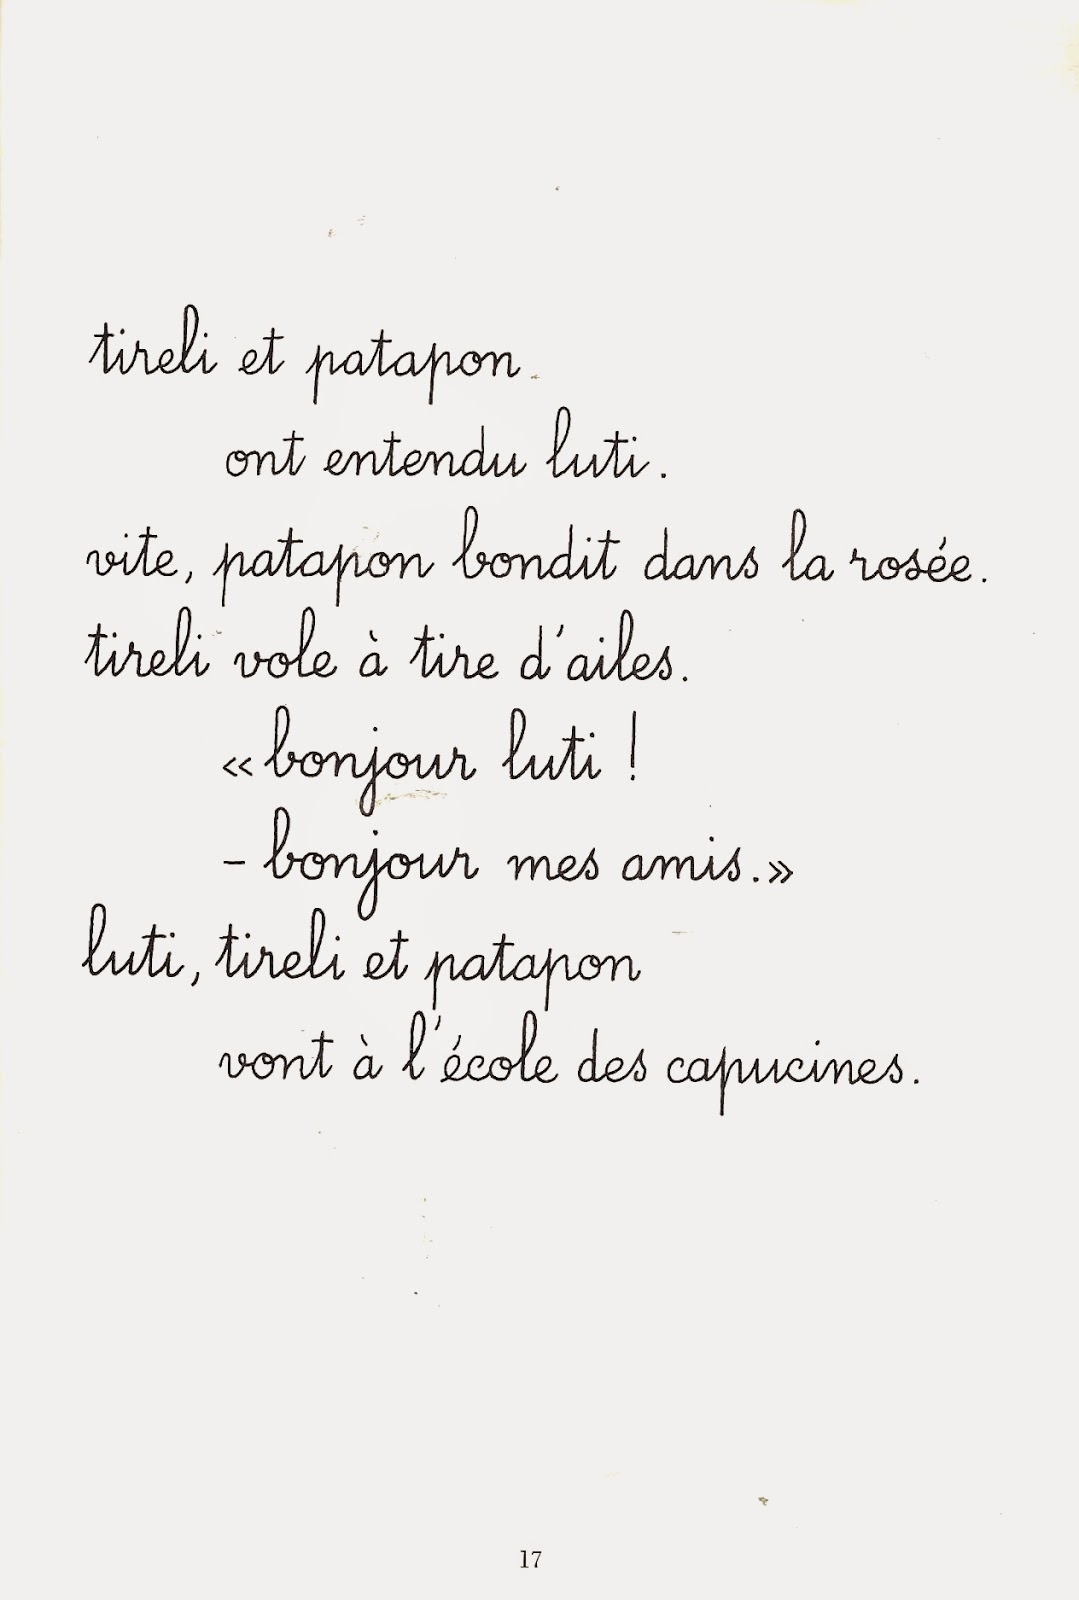 tireli et patapon
ont entendu luti.
vite, patapon bondit dans la rosée.
tireli vole à tire d'ailes.
« bonjour luti !
– bonjour mes amis. »
luti, tireli et patapon
vont à l'école des capucines.
17